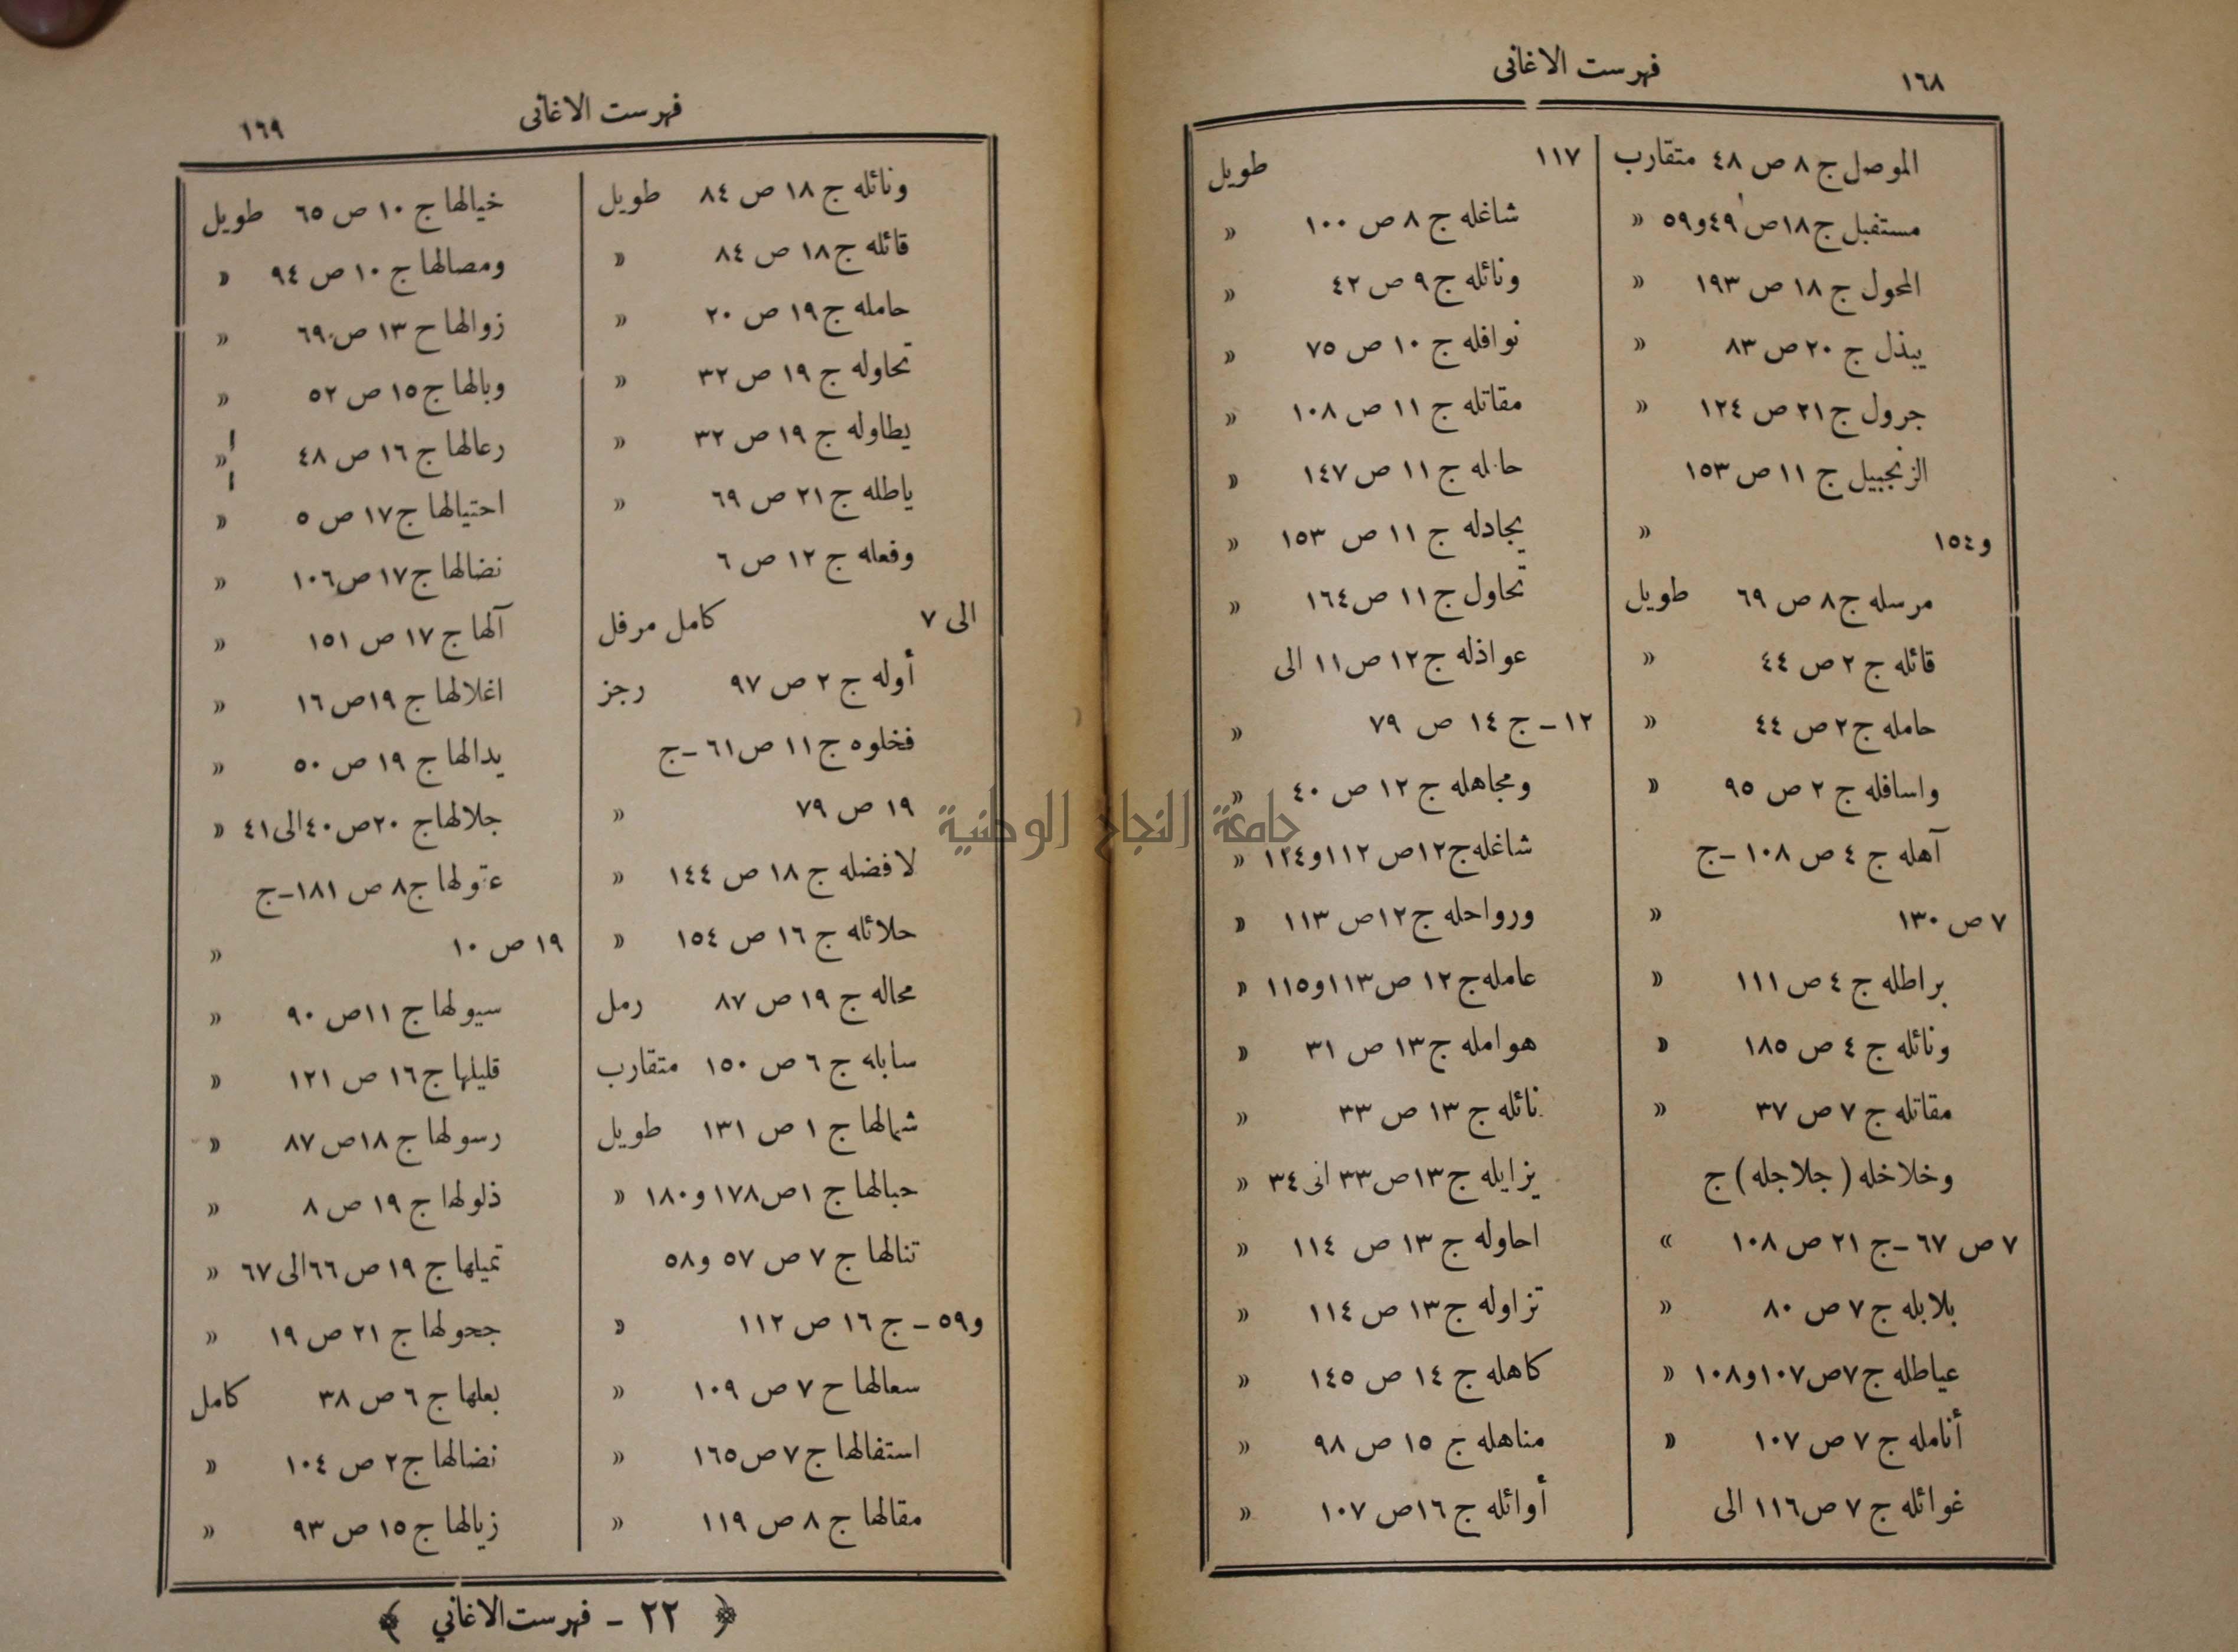 ١٦٨
فهرست الاغانى
الموصل ج ٨ ص ٤٨ متقارب
مستقبل ج ١٨ ص ٤٩ و ٥٩ «
المحول ج ١٨ ص ١٩٣ «
يبذل ج ٢٠ ص ٨٣ «
جرول ج ٢١ ص ١٢٤ «
الزنجبيل ج ١١ ص ١٥٣
و١٥٤ «
مرسله ج ٨ ص ٦٩ طويل
قائله ج ٢ ص ٤٤ «
حامله ج ٢ ص ٤٤ «
واسافله ج ٢ ص ٩٥ «
آهله ج ٤ ص ١٠٨ - ج
٧ ص ١٣٠ «
براطله ج ٤ ص ١١١ «
ونائله ج ٤ ص ١٨٥ «
مقاتله ج ٧ ص ٣٧ «
وخلاخله (جلاجله) ج
٧ ص ٦٧ - ج ٢١ ص ١٠٨ »
بلابله ج ٧ ص ٨٠ «
عياطله ج ٧ ص ١٠٧ و ١٠٨ «
أنامله ج ٧ ص ١٠٧ «
غوائله ج ٧ ص ١١٦ الى
١١٧ طويل
شاغله ج ٨ ص ١٠٠ «
ونائله ج ٩ ص ٤٢ «
نوافله ج ١٠ ص ٧٥ «
مقاتله ج ١١ ص ١٠٨ «
ج ١١ ص ١٤٧ «
يجادله ج ١١ ص ١٥٣ «
تحاول ج ١١ ص ١٦٤ «
عواذله ج ١٢ ص ١١ الى
١٢ - ج ١٤ ص ٧٩ «
ومجاهله ج ١٢ ص ٤٠ «
شاغله ج ١٢ ص ١١٢ و ١٢٤ «
ورواحله ج ١٢ ص ١١٣ «
عامله ج ١٢ ص ١١٣ و ١١٥ «
هوامله ج ١٣ ص ٣١ «
نائله ج ١٣ ص ٣٣ «
يزايله ج ١٣ ص ٣٣ الى ٣٤ «
احاوله ج ١٣ ص ١١٤ «
تزاوله ج ١٣ ص ١١٤ «
كاهله ج ١٤ ص ١٤٥ «
مناهله ج ١٥ ص ٩٨ «
أوائله ج ١٦ ص ١٠٧ «
فهرست الاغانى
١٦٩
ونائله ج ١٨ ص ٨٤ طويل
قائله ج ١٨ ص ٨٤ «
حامله ج ١٩ ص ٢٠ «
تحاوله ج ١٩ ص ٣٢ «
يطاوله ج ١٩ ص ٣٢ «
ياطله ج ٢١ ص ٦٩ «
وفعله ج ١٢ ص ٦
الى ٧ كامل مرفل
أوله ج ٢ ص ٩٧ رجز
فخلوه ج ١١ ص ٦١ - ج
١٩ ص ٧٩ «
لافضله ج ١٨ ص ١٤٤ «
حلائله ج ١٦ ص ١٥٤ «
محاله ج ١٩ ص ٨٧ رمل
سابله ج ٦ ص ١٥٠ متقارب
شمالها ج ١ ص ١٣١ طويل
حبالها ج ١ ص ١٧٨ و ١٨٠ «
تنالها ج ٧ ص ٥٧ و ٥٨
و ٥٩ - ج ١٦ ص ١١٢ «
سعالها ح ٧ ص ١٠٩ «
استفالها ج ٧ ص ١٦٥ «
مقالها ج ٨ ص ١١٩ «
خيالها ج ١٠ ص ٦٥ طويل
ومصالها ج ١٠ ص ٩٤ «
زوالها ح ١٣ ص ٦٩ «
وبالها ج ١٥ ص ٥٢ «
رعالها ج ١٦ ص ٤٨ «
احتيالها ج ١٧ ص ٥ «
نضالها ج ١٧ ص ١٠٦ «
آلها ج ١٧ ص ١٥١ «
اغلالها ج ١٩ ص ١٦ «
يدالها ج ١٩ ص ٥٠ «
جلالها ج ٢٠ ص ٤٠ الى ٤١ «
ج ٨ ص ١٨١ - ج
١٩ ص ١٠ «
سيولها ج ١١ ص ٩٠ «
قليلها ج ١٦ ص ١٢١ «
رسولها ج ١٨ ص ٨٧ «
ذلولها ج ١٩ ص ٨ «
تميلها ج ١٩ ص ٦٦ الى ٦٧ «
جحولها ج ٢١ ص ١٩ «
بعلها ج ٦ ص ٣٨ كامل
نضالها ج ٢ ص ١٠٤ «
زيالها ج ١٥ ص ٩٣ «
﴿ ٢٢ - فهرست الاغاني ﴾
جامعة النجاح الوطنية